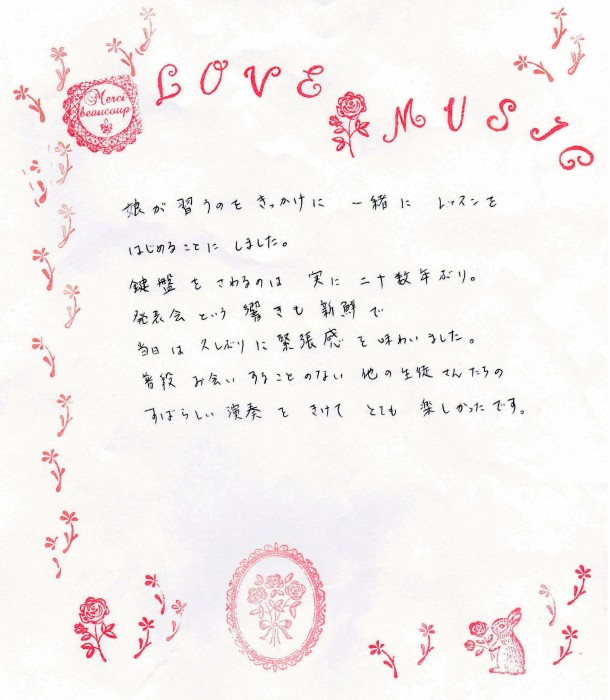 Merci
beaucoup
LOVE
MUSIC
娘が習うのをきっかけに 一緒に レッスンを
はじめることに しました。
鍵盤をさわるのは 実に 二十数年ぶり。
発表会という響きも新鮮で
当日は久しぶりに緊張感を味わいました。
普段お会いすることのない他の生徒さんたちの
すばらしい演奏をきけてとても楽しかったです。